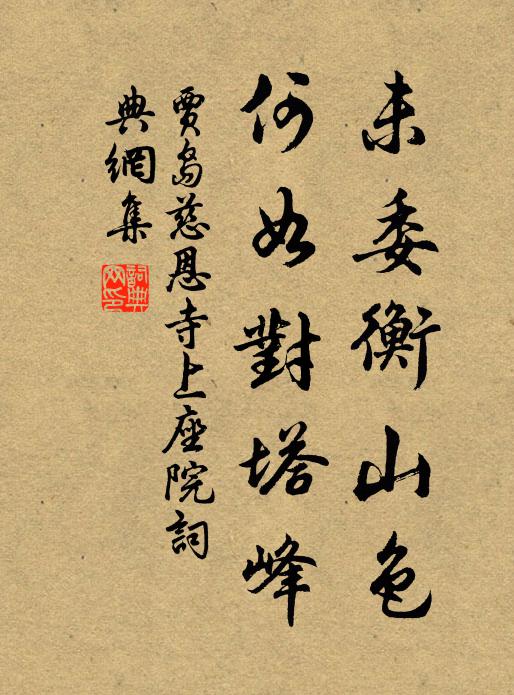 未委衡山色
何如對塔峰
賈島慈恩寺上座院詞
典網集
詞典
网印